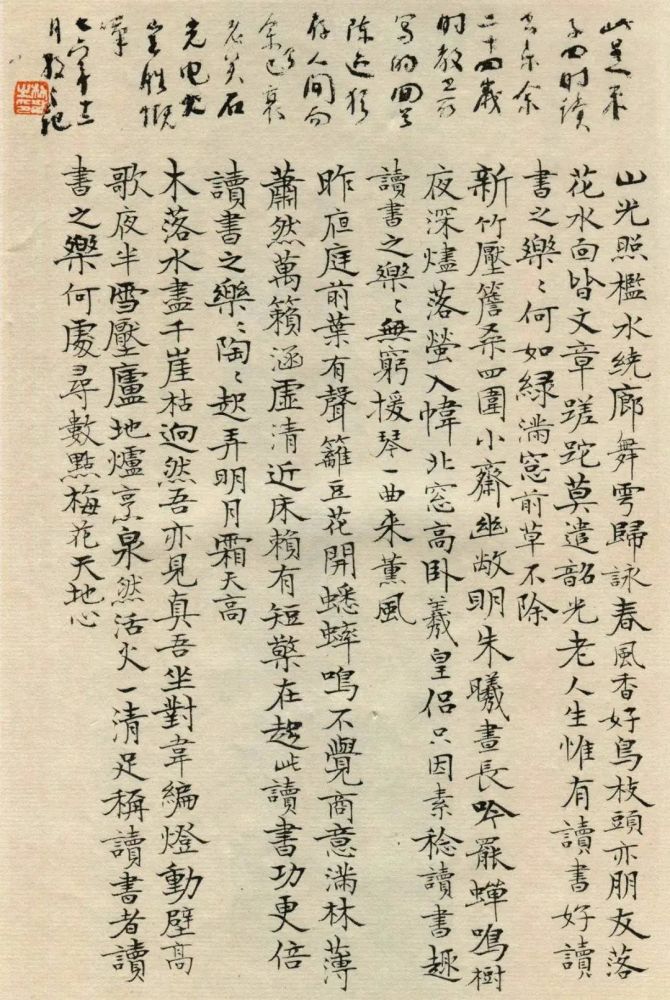 此是朱
子四时读
书乐余
二十四歲
时
写的回首
陈迹犹
存人间而
余已衰
老矣石
光电火
豈胜慨
嘆
七六年十二
月散之记
山光照檻水繞廊舞雩歸詠春風香好鳥枝頭亦朋友落
花水面皆文章蹉跎莫遣韶光老人生惟有讀書好讀
書之樂〻何如綠滿窓前草不除
新竹壓簷桑四圍小齋幽敞明朱曦晝長吟罷蟬鳴樹
夜深燼落螢入幃北窓高卧羲皇侣只因素稔讀書趣
讀書之樂〻無窮援琴一曲来薰風
昨夜庭前葉有聲籬豆花開蟋蟀鳴不覺商意滿林薄
蕭然萬籟涵虛清近床賴有短檠在趁此讀書功更倍
讀書之樂〻陶〻起弄明月霜天高
木落水盡千崖枯迥然吾亦見真吾坐對韋編燈動壁高
歌夜半雪壓廬地爐烹泉然活火一清足稱讀書者讀
書之樂何處尋數點梅花天地心